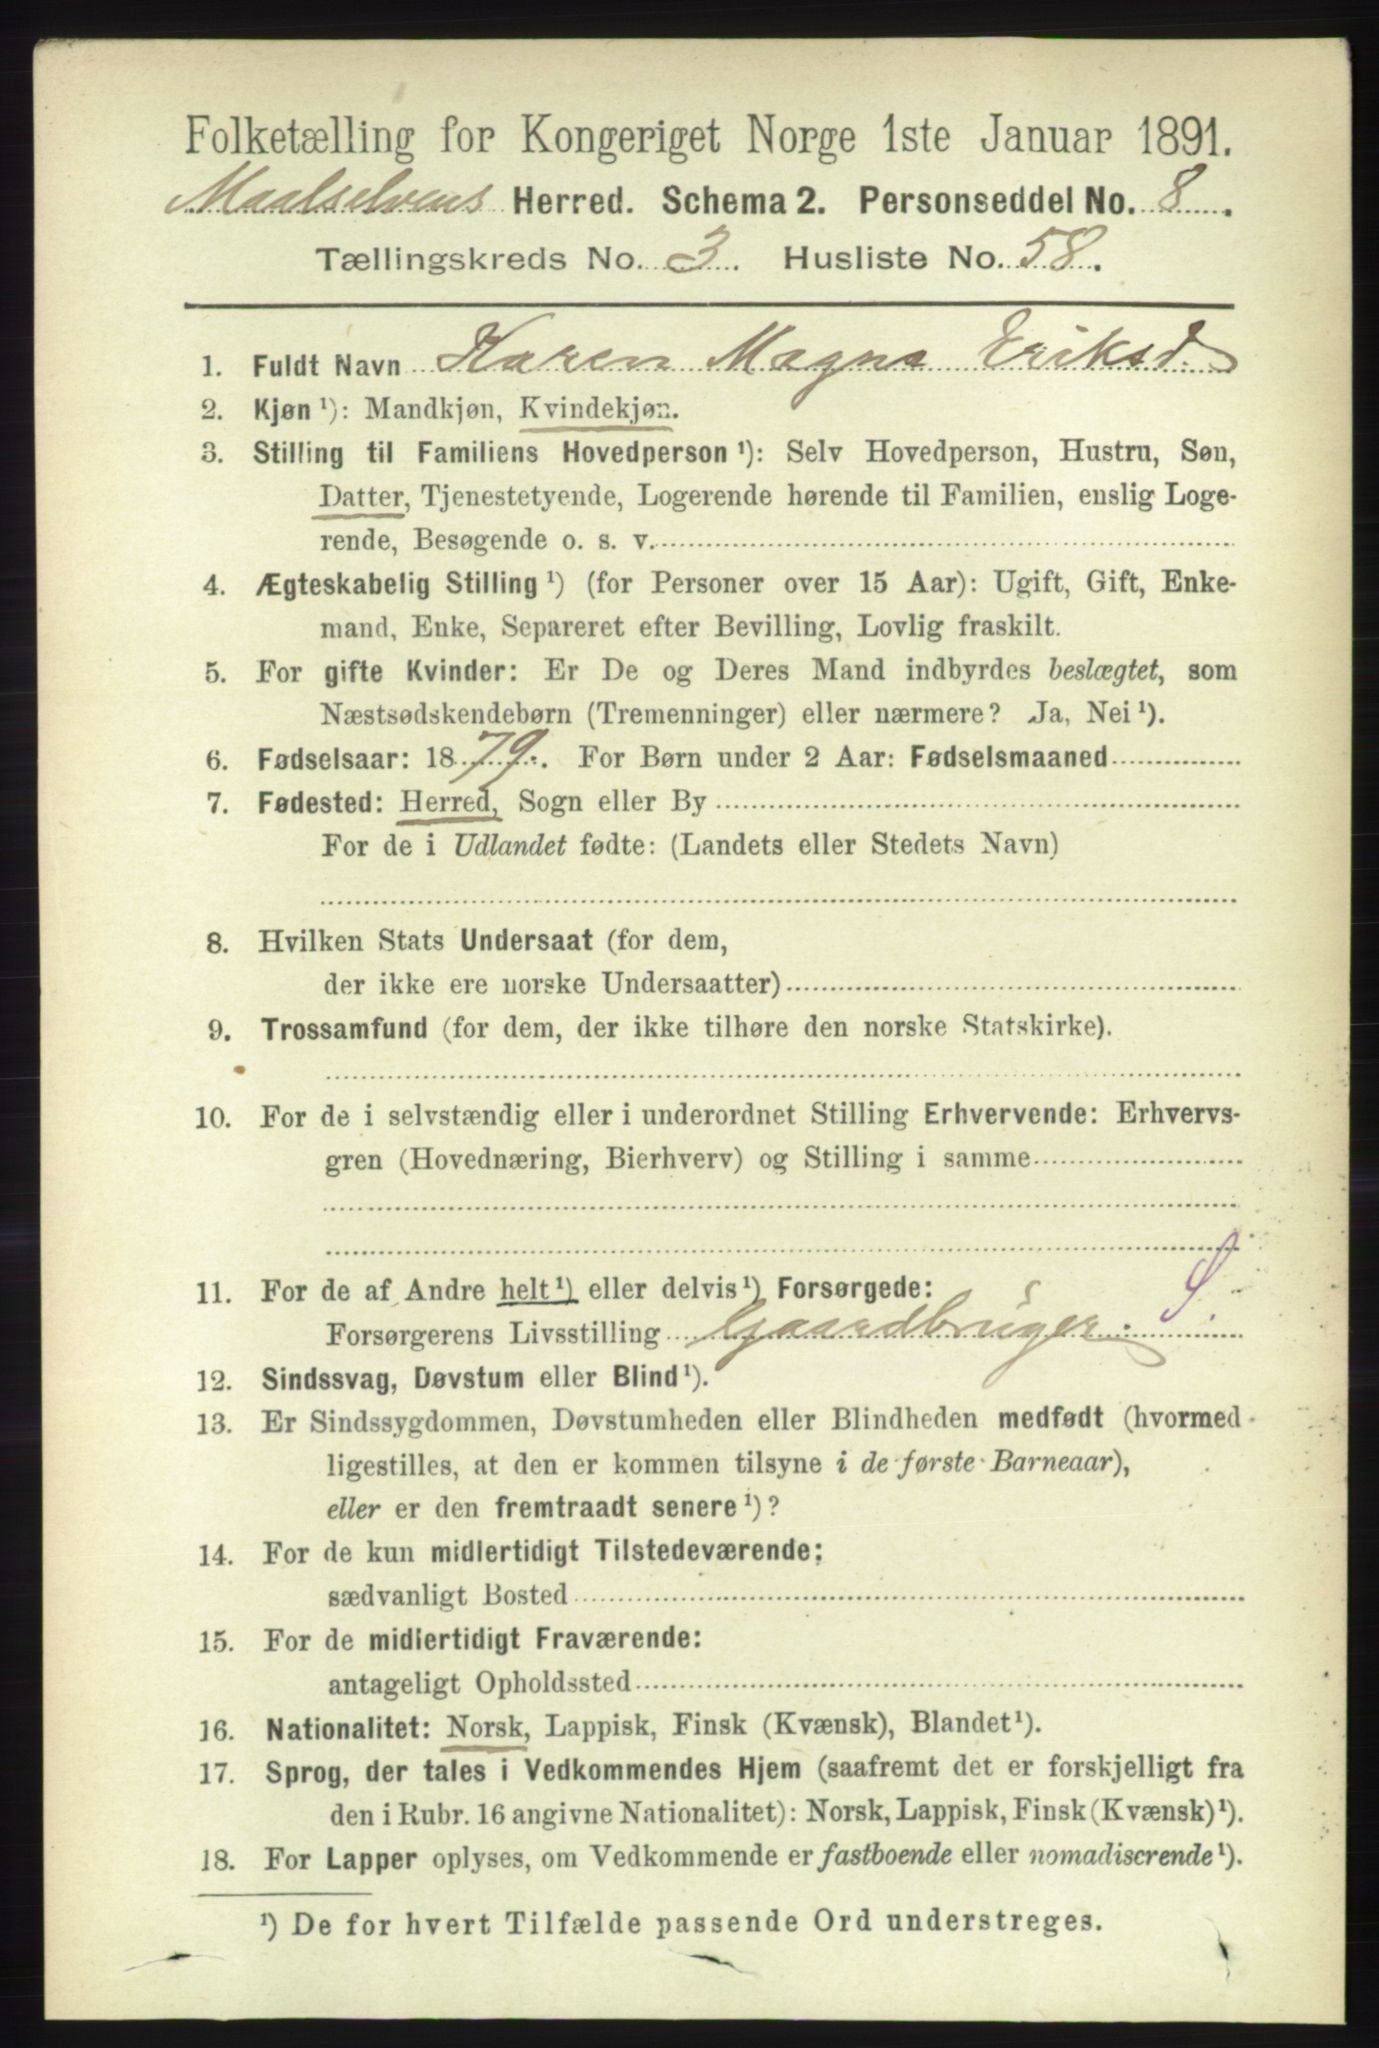 Folketælling for Kongeriget Norge 1ste Januar 1891.
Maalselvens Herred. Schema 2. Personseddel No. 8.
Tællingskreds No. 3. Husliste No. 58.
1. Fuldt Navn Karen Magna Eriksd.
2. Kjøn ¹): Mandkjøn, Kvindekjøn.
3. Stilling til Familiens Hovedperson ¹): Selv Hovedperson, Hustru, Søn,
Datter, Tjenestetyende, Logerende hørende til Familien, enslig Loge-
rende, Besøgende o. s. v.
4. Ægteskabelig Stilling ¹) (for Personer over 15 Aar): Ugift, Gift, Enke-
mand, Enke, Separeret efter Bevilling, Lovlig fraskilt.
5. For gifte Kvinder: Er De og Deres Mand indbyrdes beslægtet, som
Næstsødskendebørn (Tremenninger) eller nærmere? Ja, Nei ¹).
6. Fødselsaar: 1879. For Børn under 2 Aar: Fødselsmaaned
7. Fødested: Herred, Sogn eller By
For de i Udlandet fødte: (Landets eller Stedets Navn)
8. Hvilken Stats Undersaat (for dem,
der ikke ere norske Undersaatter)
9. Trossamfund (for dem, der ikke tilhøre den norske Statskirke).
10. For de i selvstændig eller i underordnet Stilling Erhvervende: Erhvervs-
gren (Hovednæring, Bierhverv) og Stilling i samme
11. For de af Andre helt ¹) eller delvis ¹) Forsørgede:
Forsørgerens Livsstilling Gaardbruger. S.
12. Sindssvag, Døvstum eller Blind ¹).
13. Er Sindssygdommen, Døvstumheden eller Blindheden medfødt (hvormed
ligestilles, at den er kommen tilsyne i de første Barneaar),
eller er den fremtraadt senere ¹)?
14. For de kun midlertidigt Tilstedeværende:
sædvanligt Bosted
15. For de midlertidigt Fraværende:
antageligt Opholdssted
16. Nationalitet: Norsk, Lappisk, Finsk (Kvænsk), Blandet ¹).
17. Sprog, der tales i Vedkommendes Hjem (saafremt det er forskjelligt fra
den i Rubr. 16 angivne Nationalitet): Norsk, Lappisk, Finsk (Kvænsk) ¹).
18. For Lapper oplyses, om Vedkommende er fastboende eller nomadiserende ¹).
¹) De for hvert Tilfælde passende Ord understreges.